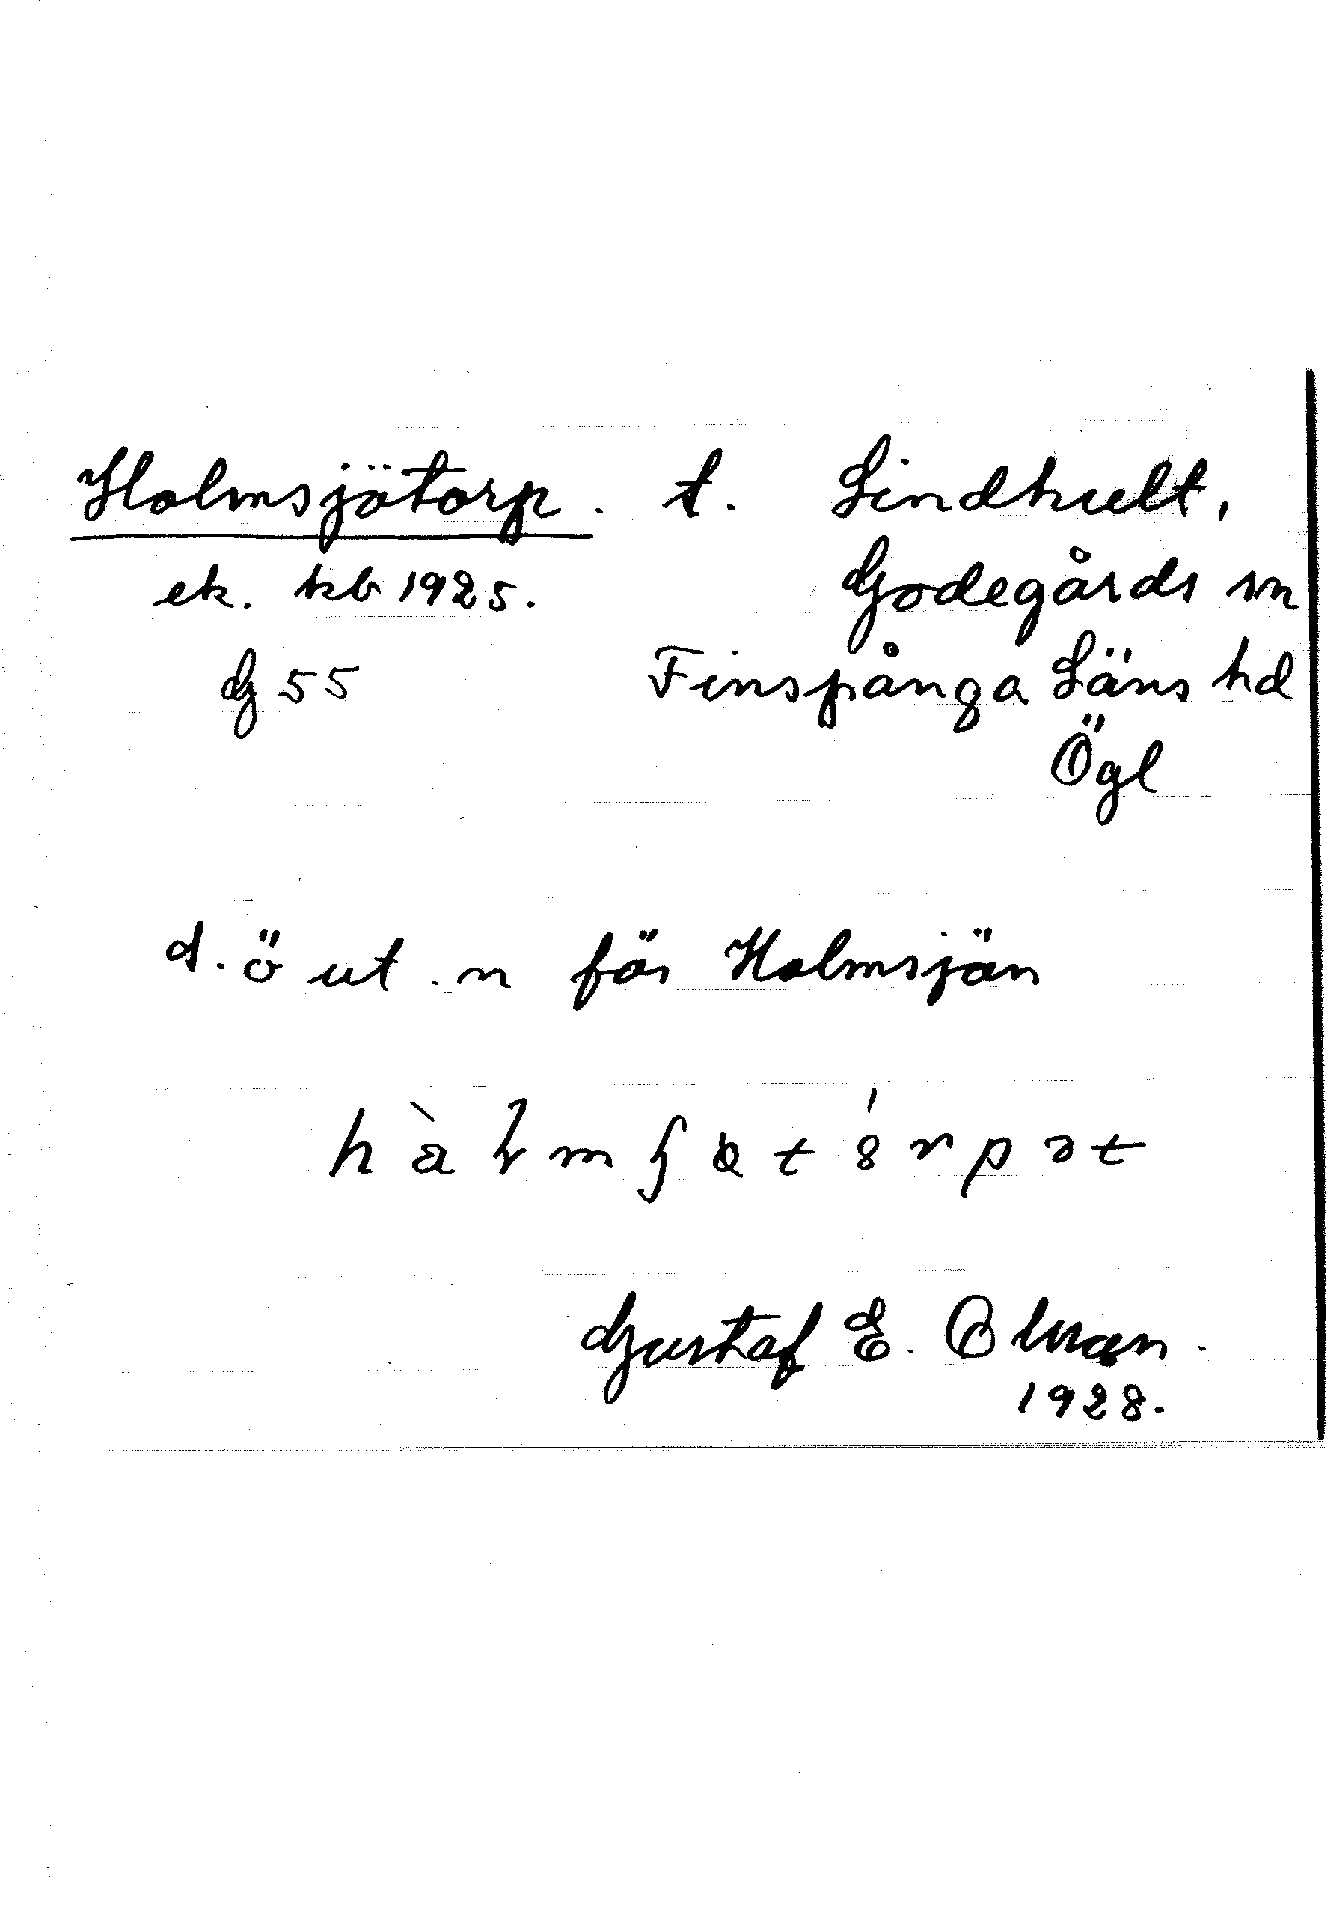 Holmsjötorp. t. Lindhult,
ek. kb 1925. Godegårds sn
G 55 Finspånga Läns hd
Ögl
d. ö ut. n för Holmsjön
Gustaf E. Olman.
1928.